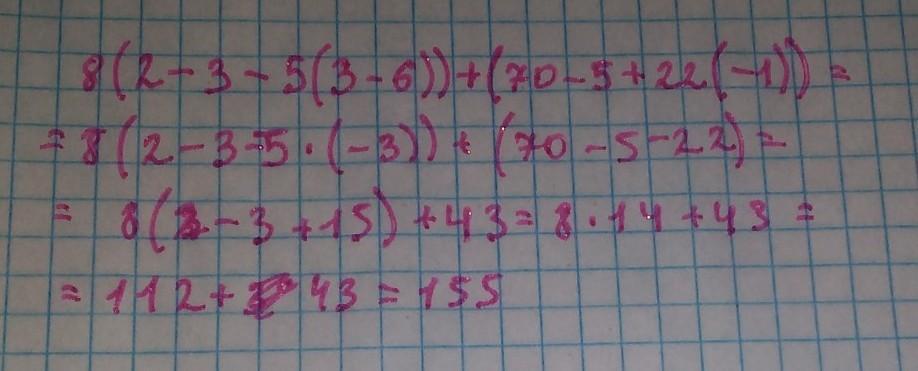 8(2-3-5(3-6))+(70-5+22(-1))=
=8(2-3-5·(-3))+(70-5-22)=
=8(2-3+15)+43=8·14+43=
=112+43=155